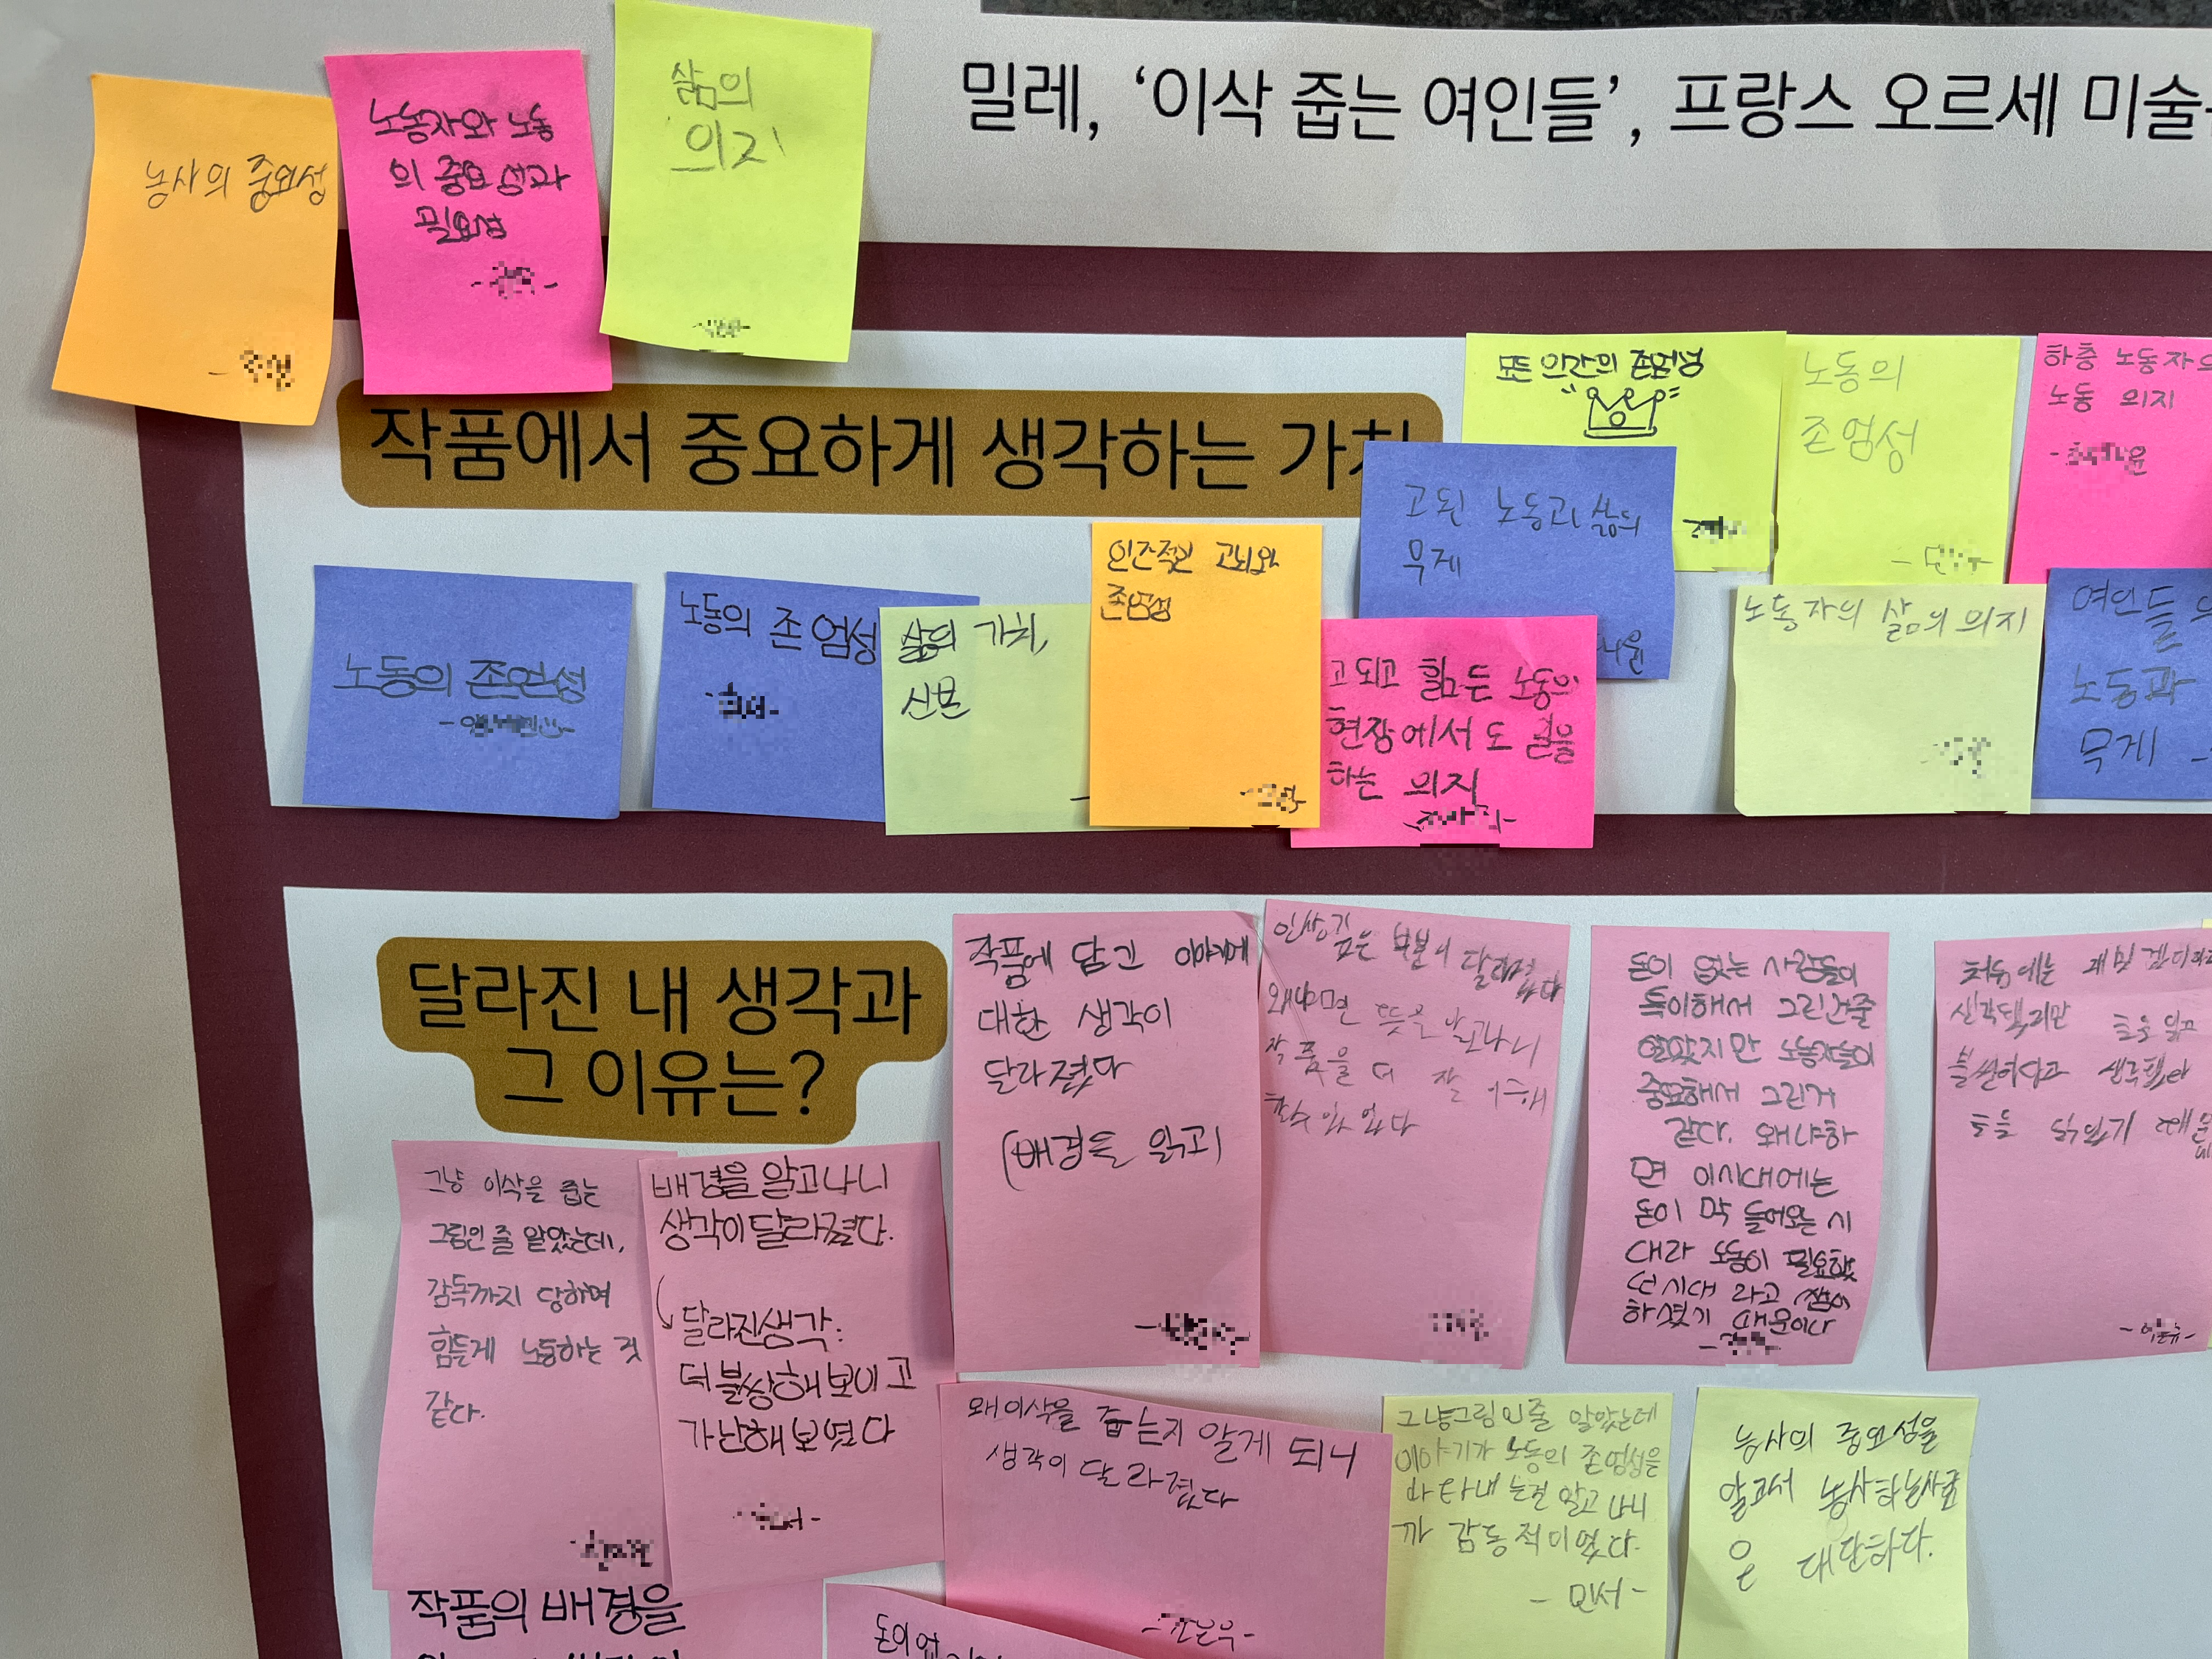 밀레, ‘이삭 줍는 여인들’, 프랑스 오르세 미술
농사의 중요성
노동자와 노동
의 중요성과
필요성
삶의
의지
작품에서 중요하게 생각하는 가치
모든 인간의 존엄성
노동의
존엄성
하층 노동자의
노동 의지
고된 노동과 삶의
무게
노동의 존엄성
노동의 존엄성
삶의 가치,
신분
인간적인 고뇌와
존엄성
고되고 힘든 노동의
현장에서도 일을
하는 의지
노동자의 삶의 의지
여인들의
노동과
무게
달라진 내 생각과
그 이유는?
작품에 담긴 이야기에
대한 생각이
달라졌다
(배경을 읽고)
인상깊
은 부분이 달라졌다
왜냐면 뜻을 알고나니
작품을 더 잘 이해
할 수 있었다
돈이 없는 사람들이
특이해서 그린건줄
알았지만 노동자들이
중요해서 그린거
같다. 왜냐하
면 이시대에는
돈이 막 들어오는 시
대라 노동이 필요했
던 시대 라고 쌤이
하셨기 때문이다
처음에는
생각했지만 글을 읽고
불쌍하다고 생각했다
글을 읽었기 때문
그냥 이삭을 줍는
그림인 줄 알았는데,
감독까지 당하며
힘들게 노동하는 것
같다.
배경을 알고나니
생각이달라졌다.
달라진생각:
더 불쌍해보이고
가난해보였다
왜 이삭을 줍는지 알게 되니
생각이 달라졌다
그냥그림인줄 알았는데
이야기가 노동의 존엄성을
나타내는걸 알고 나니
까 감동적이었다.
- 민서 -
농사의 중요성을
알고서 농사하는사람
은 대단하다.
작품의 배경을
돈이 없